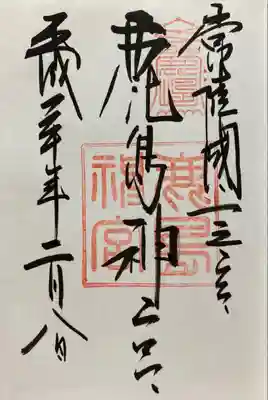 常陸國一之宮
鹿島神宮
平成年二月八日
鹿島
神宮